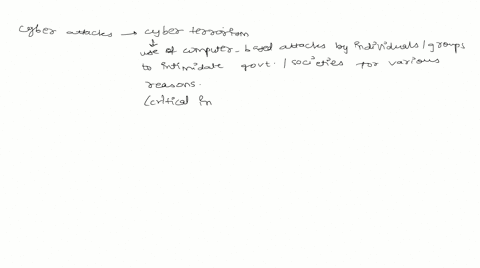 cyber attacks → cyber terrorism
↓
use of computer-based attacks by individuals/groups
to intimidate govt. / societies for various
reasons.
(critical in